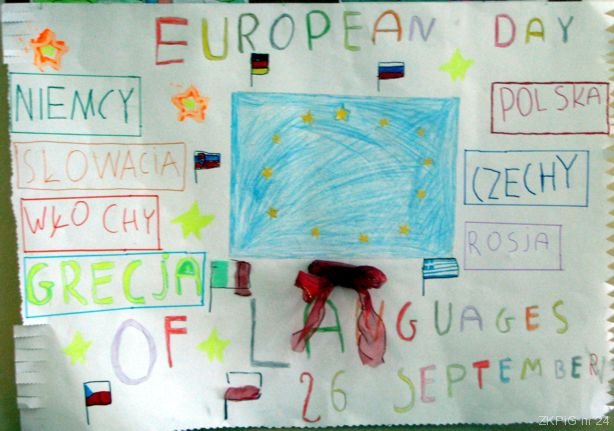 EUROPEAN DAY
NIEMCY
POLSKA
SŁOWACJA
CZECHY
WŁOCHY
ROSJA
GRECJA
OF LANGUAGES
26 SEPTEMBER
ZKPiG nr 24